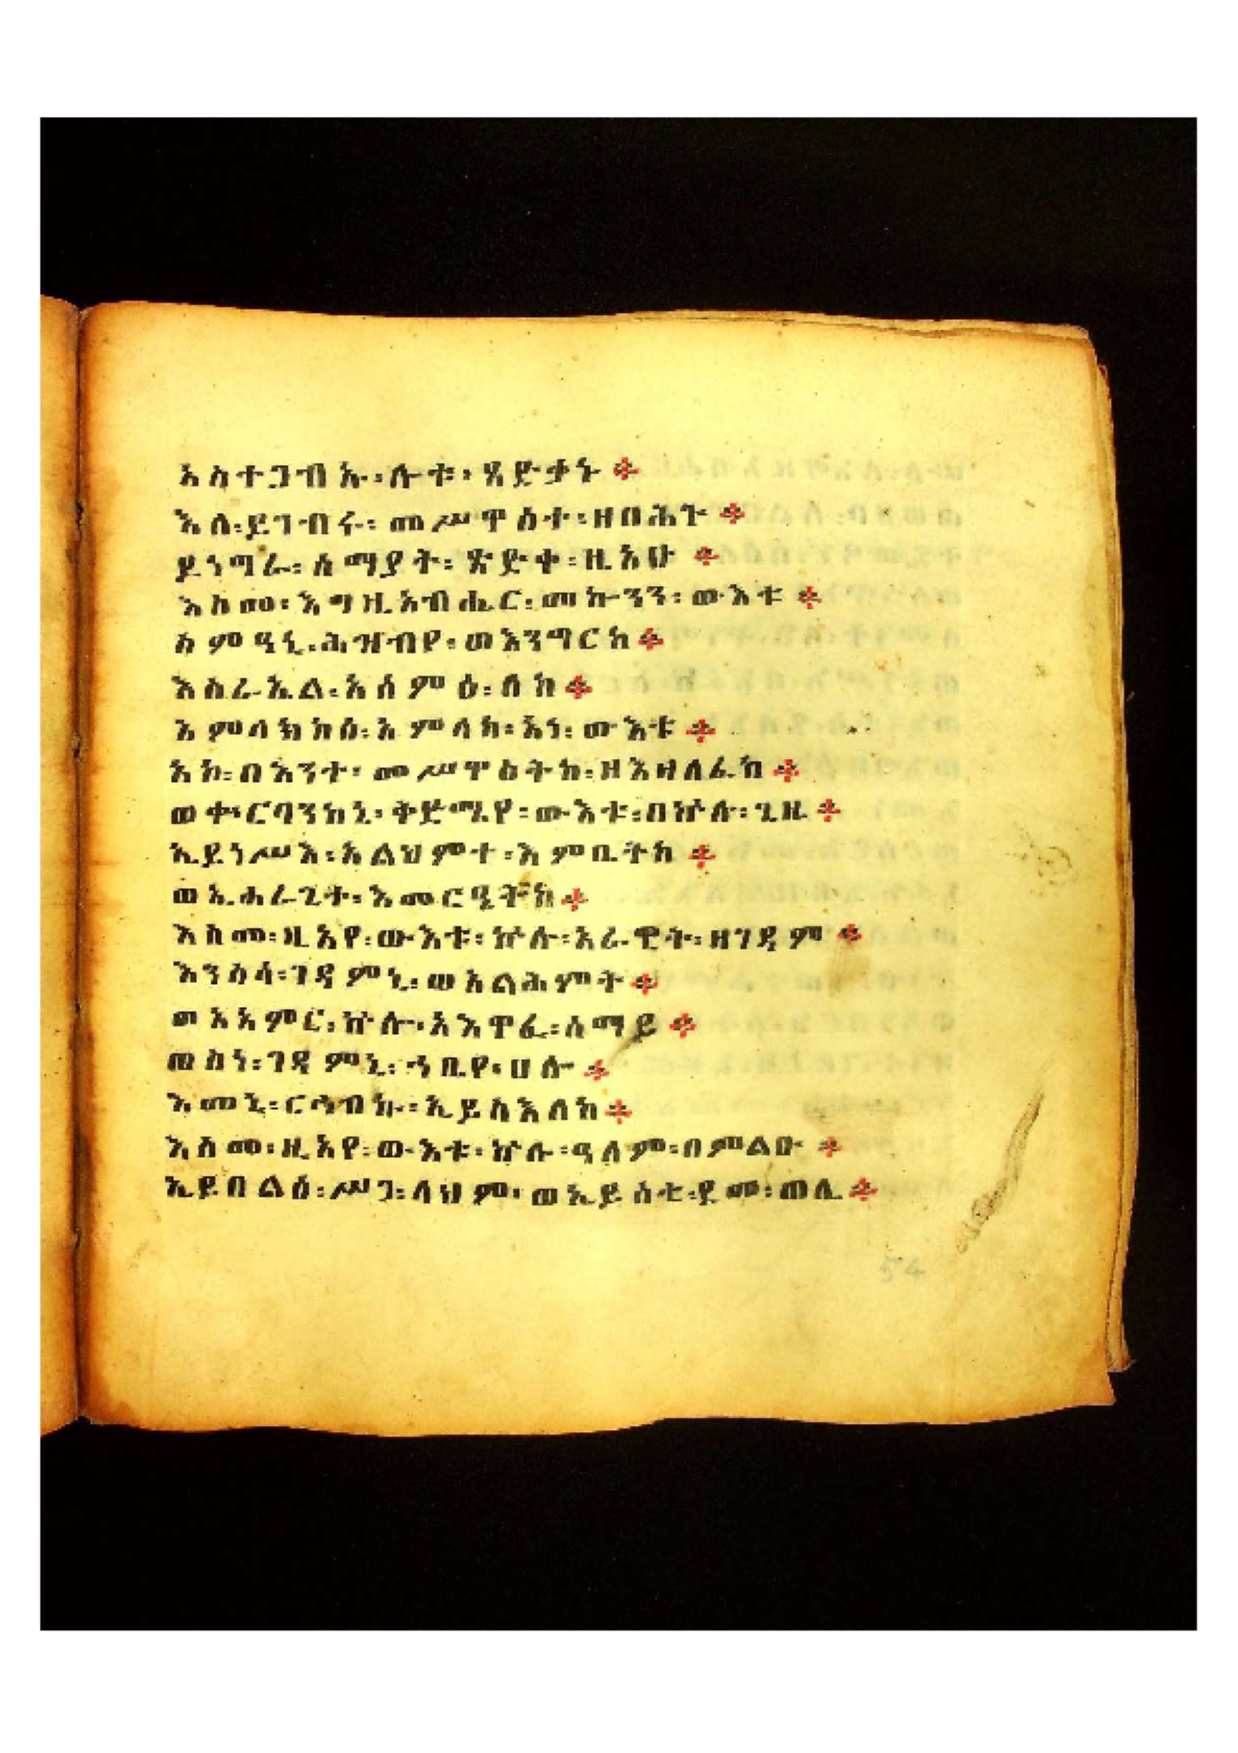 አስተጋብኡ፡ሎቱ፡ጻድቃኑ፨
እለ፡ይገብሩ፡መሥዋዕተ፡ዘበሕጉ፨
ይነግራ፡ሰማያት፡ጽድቀ፡ዚአሁ፨
እስመ፡እግዚአብሔር፡መኰንን፡ውእቱ፨
ስምዓኒ፡ሕዝብየ፡ወእንግርከ፨
እስራኤል፡አሰምዕ፡ለከ፨
አምላክከሰ፡አምላክ፡አነ፡ውእቱ፨
አኮ፡በእንተ፡መሥዋዕትከ፡ዘእዛለፈከ፨
ወቍርባንከኒ፡ቅድሜየ፡ውእቱ፡በኵሉ፡ጊዜ፨
ኢይነሥእ፡አልህምተ፡እምቤትከ፨
ወኢሐራጊተ፡እመርዔትከ፨
እስመ፡ዚአየ፡ውእቱ፡ኵሉ፡አራዊት፡ዘገዳም፨
እንስሳ፡ገዳምኒ፡ወአልሕምት፨
ወአአምር፡ኵሎ፡አእዋፈ፡ሰማይ፨
ወስነ፡ገዳምኒ፡ኀቤየ፡ሀሎ፨
እመኒ፡ርኅብኩ፡ኢይስእለከ፨
እስመ፡ዚአየ፡ውእቱ፡ኵሉ፡ዓለም፡በምልዑ፨
ኢይበልዕ፡ሥጋ፡ላህም፡ወኢይሰቲ፡ደመ፡ጠሊ፨
54